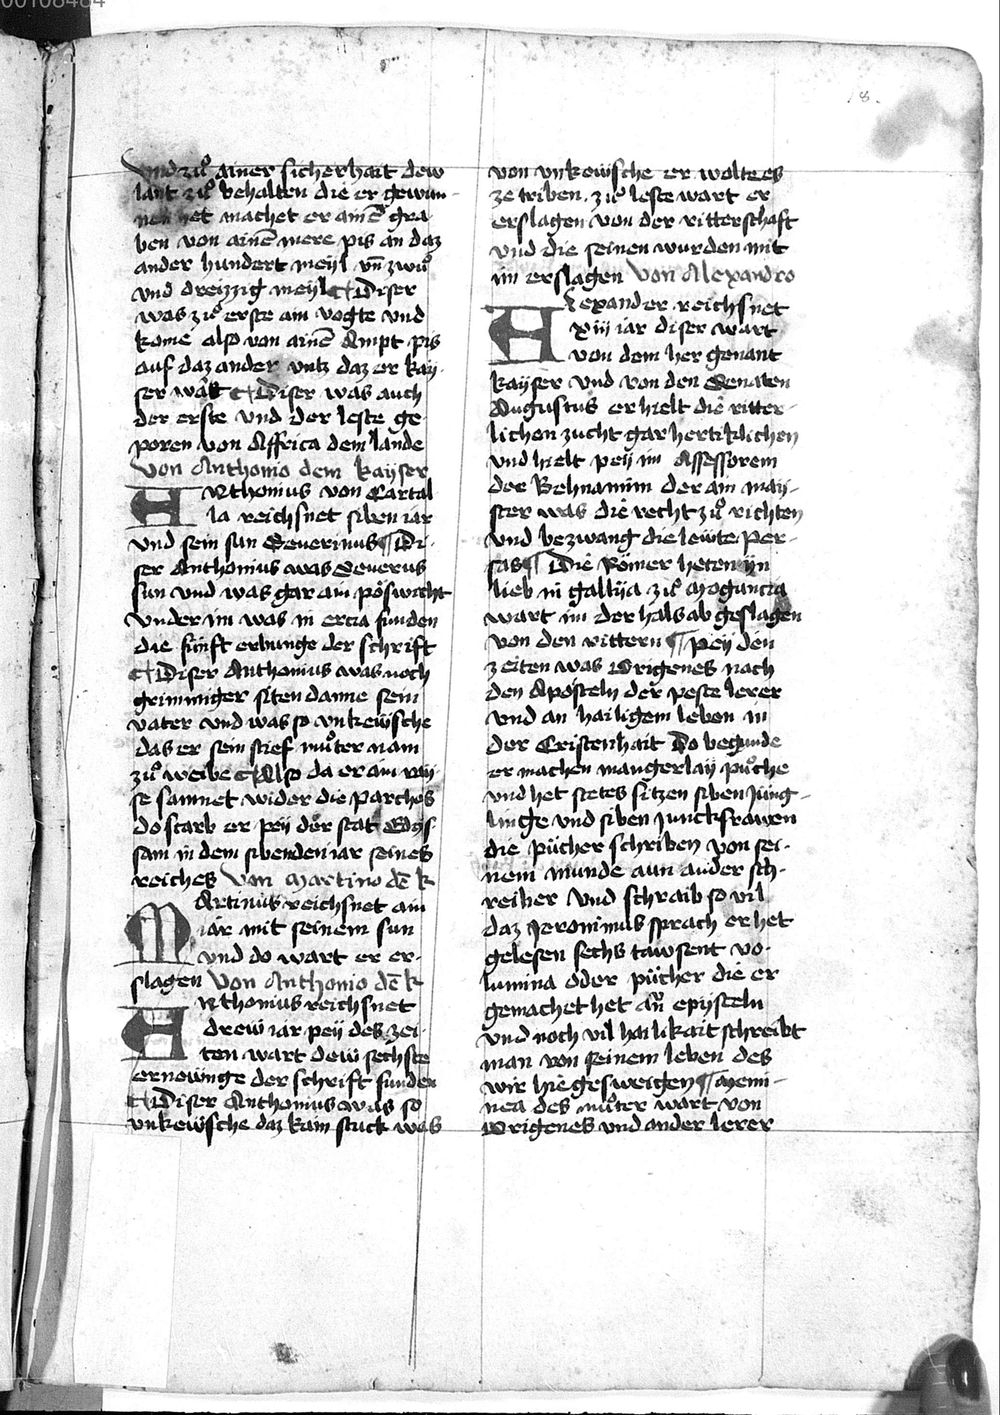 00108484
8.
Vnd zuͦ ainer sicherhait dew
lant zuͦ behalten die er gewun-
nen het machet er ainē gra
ben von ainē mere pis an daz
ander hundert meyl vn̄ zwuͦ
vnd dreizzig meyl ¶ Diser
was zuͦ erste ain vogte vnd
kome also von ainē Ampt pis
auf daz ander vntz daz er kay-
ser wart ¶ Diser was auch
der erste vnd der leste ge
poren von Affrica dem lande
Von Anthonio dem kayser
ANthonius von Cartal
la reichsnet siben iar
vnd sein sun Seuerinus ¶ Di-
ser Anthonius was Seuerus
sun vnd was gar ain poͤswicht
vnder im was in ercia funden
die fünft erbunge der schrift
¶ Diser Anthonius was noch
grimmiger siten danne sein
vater vnd was so vnkewsche
das er sein stief muͦter nam
zuͦ weibe ¶ Also da er ain ray-
se samnet wider die parthos
do starb er pey der stat Edis-
sam in dem sibenden iar seines
reiches Von Martino dē k
MArtinus reichsnet ain
iar mit seinem sun
vnd do wart er er-
slagen Von Anthonio dē k
ANthonius reichsnet
drew iar pey des zei-
ten wart dew sechste
ernowinge der schrift funden
¶ Diser Anthonius was so
vnkewsche daz kain stuck was
von vnkewsche er wolte es
ze triben. zuͦ leste wart er
erslagen von der ritterschaft
vnd die seinen wurden mit
im erslagen Von Alexandro
ALexander reichsnet
xiij iar diser wart
von dem her genant
kayser vnd von den Senaten
Augustus er hielt die ritter-
lichen zucht gar herticklichen
vnd hielt pey im Assessorem
der Behnamim der ain may-
ster was die recht zuͦ richten
vnd bezwang die lewte per-
sas ¶ Die Roͤmer heten yn
lieb in gallyia zuͦ Mogancia
wart im der hals ab geslagen
von den rittern ¶ pey den
zeiten was Origenes nach
den Aposteln der peste lerer
vnd an hailigem leben in
der Cristenhait Do begunde
er machen mangerlay puͤche
vnd het stetes sitzen siben Jung-
linge vnd siben junckfrawen
die puͤcher schriben von sei-
nem munde aun ander sch-
reiber Vnd schraib so vil
daz Jeronimus sprach er het
gelesen sechs tawsent vo-
lumina oder puͤcher die er
gemachet het an̄ epysteln
vnd noch vil hailikait schreibt
man von seinem leben des
wir hie gesweigen ¶ Memi-
nea des muͦter wart von
Origenes vnd ander lerer